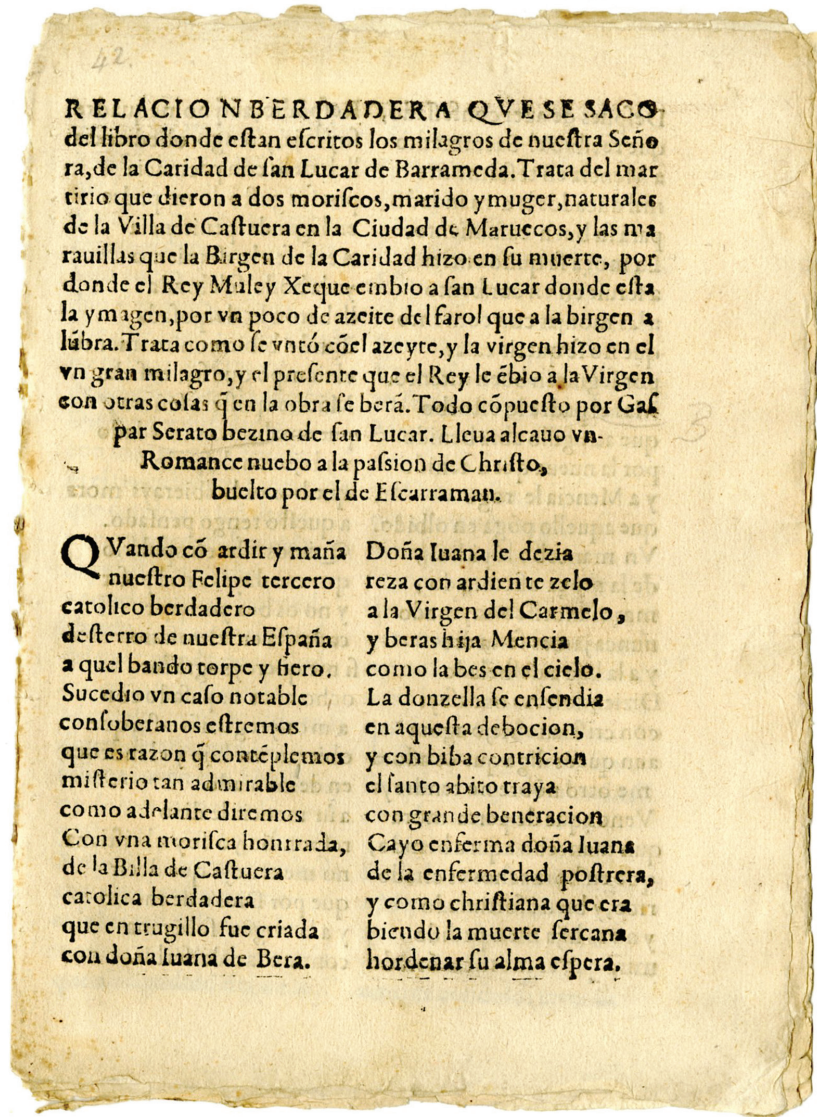 42
RELACION BERDADERA QVE SE SACO
del libro donde eſtan eſcritos los milagros de nueſtra Seño
ra, de la Caridad de ſan Lucar de Barrameda. Trata del mar
tirio que dieron a dos moriſcos, marido y muger, naturales
de la Villa de Caſtuera en la Ciudad de Maruecos, y las ma
rauillas que la Birgen de la Caridad hizo en ſu muerte, por
donde el Rey Muley Xeque embio a ſan Lucar donde eſta
la ymagen, por vn poco de azeite del farol que a la birgen a
lũbra. Trata como ſe vntó cõel azeyte, y la virgen hizo en el
vn gran milagro, y el preſente que el Rey le ẽbio a la Virgen
con otras coſas q̃ en la obra ſe berá. Todo cõpueſto por Gaſ
par Serato bezino de ſan Lucar. Lleua alcauo vn
Romance nuebo a la paſsion de Chriſto,
buelto por el de Eſcarraman.
QVando cõ ardir y maña
nueſtro Felipe tercero
catolico berdadero
deſterro de nueſtra Eſpaña
a quel bando torpe y fiero.
Sucedio vn caſo notable
conſoberanos eſtremos
que es razon q̃ contẽplemos
miſterio tan admirable
como adelante diremos
Con vna moriſca honrrada,
de la Billa de Caſtuera
catolica berdadera
que en trugillo fue criada
con doña Iuana de Bera.
Doña Iuana le dezia
reza con ardiente zelo
a la Virgen del Carmelo,
y beras hija Mencia
como la bes en el cielo.
La donzella ſe enſendia
en aqueſta debocion,
y con biba contricion
el ſanto abito traya
con grande beneracion
Cayo enferma doña Iuana
de la enfermedad poſtrera,
y como chriſtiana que era
biendo la muerte ſercana
hordenar ſu alma eſpera.